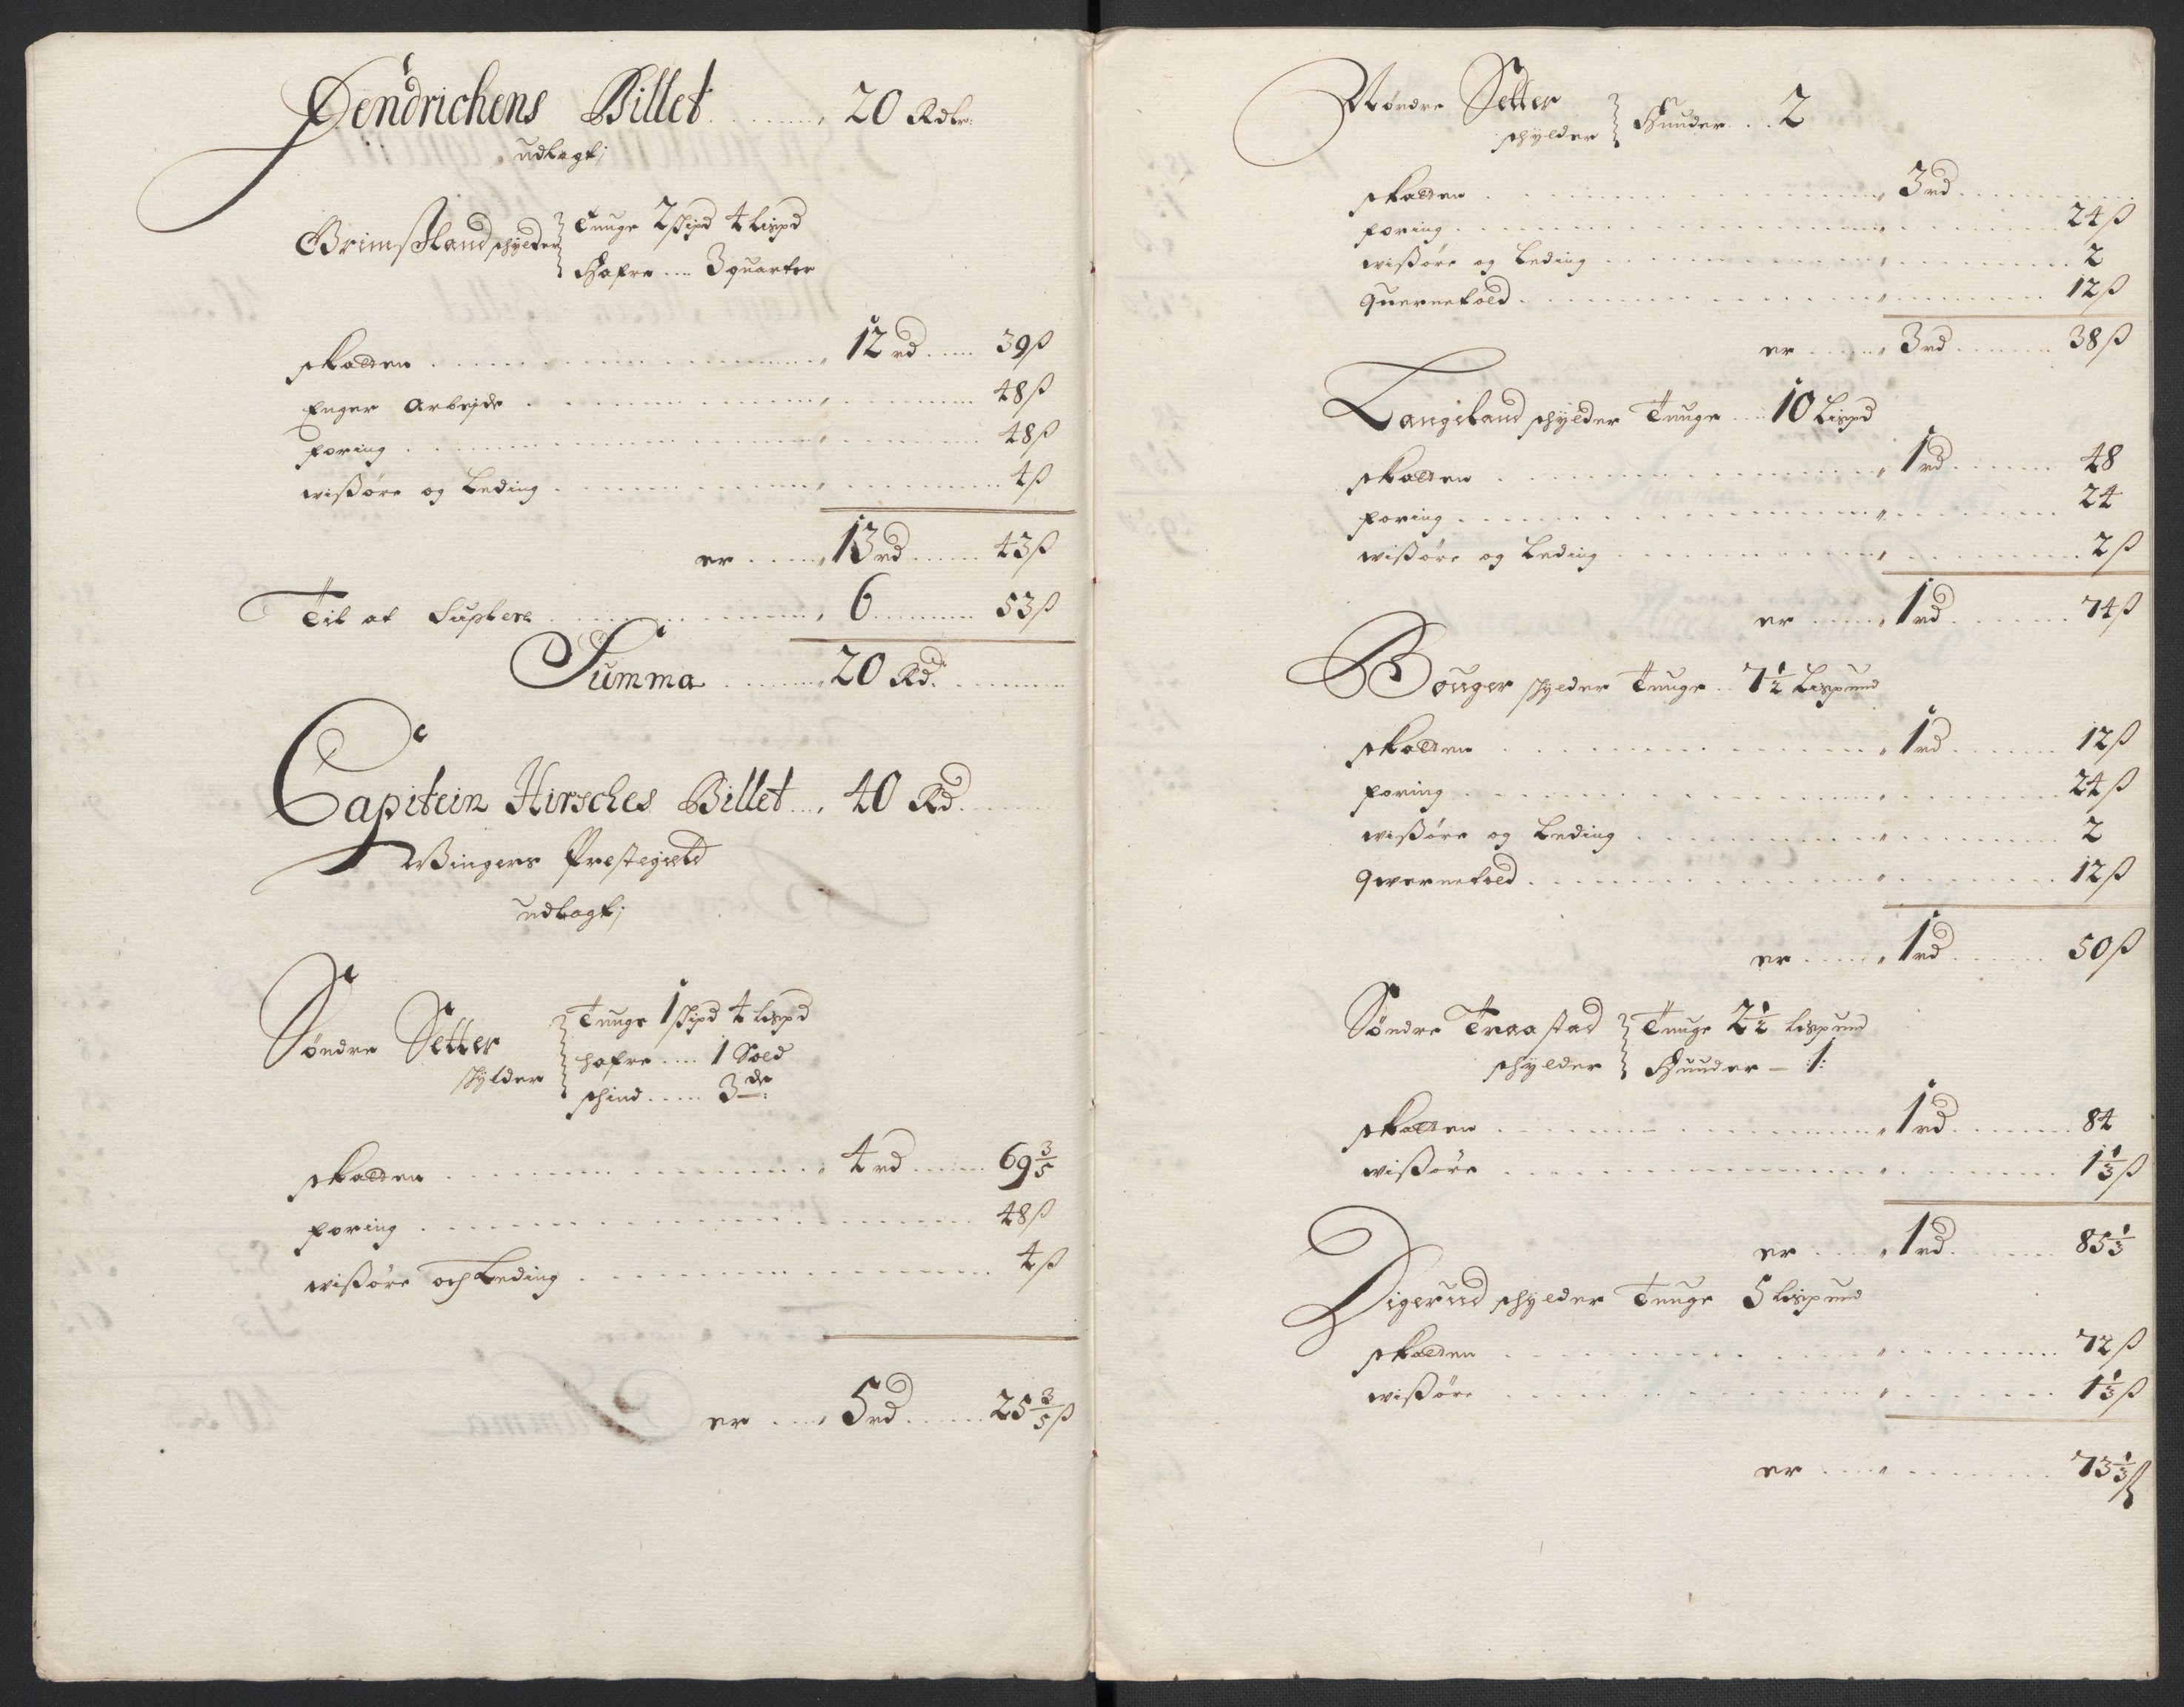 Fendrichens Billet ......... 20 Rdlr:
udlagt;
Grimsland schylder } Tunge 2 schpd 4 Lispd
Hafre .... 3 quarter
skatten ......... 12 rd .... 39 ß
Enger Arbejde ......... 48 ß
foring ......... 48 ß
wissøre og Leding ......... 4 ß
er ..... 13 rd .... 43 ß
Til at Suplere ......... 6 ........ 53 ß
Summa ......... 20 Rd. .........
Capitein Hirsches Billet .... 40 Rd. ......
Wingers Prestegield
udlagt;
Søndre Setter
schylder } Tunge 1 schpd 4 Lispd
hafre .... 1 Sold
schind ..... 3 de:
skatten ......... 4 rd ..... 69 3/5
foring ......... 48 ß
wissøre och Leding ......... 4 ß
er .... 5 rd ..... 25 3/5 ß
Nordre Setter
schylder } Huuder . . . 2
skatten ......... 3 rd .........
foring ......... 24 ß
wissøre og Leding ......... 2
Quernetold ......... 12 ß
er ..... 3 rd ....... 38 ß
Langeland schylder Tunge .... 10 Lispd
skatten ......... 1 rd ...... 48
foring ......... 24
wissøre og Leding ......... 2 ß
er ..... 1 rd ...... 74 ß
Bouger schylder Tunge . . 7 1/2 Lispund
skatten ......... 1 rd ...... 12 ß
foring ......... 24 ß
wissøre og Leding ......... 2
Qwernetold ......... 12 ß
er ..... 1 rd ...... 50 ß
Søndre Traastad
schylder } Tunge 2 1/2 Lispund
Huuder – 1:
skatten ......... 1 rd ...... 84
wissøre ......... 1 1/3 ß
er ..... 1 rd ...... 85 1/3
Digerud schylder Tunge 5 Lispund
skatten ......... 72 ß
wissøre ......... 1 1/3 ß
er ......... 73 1/3 ß